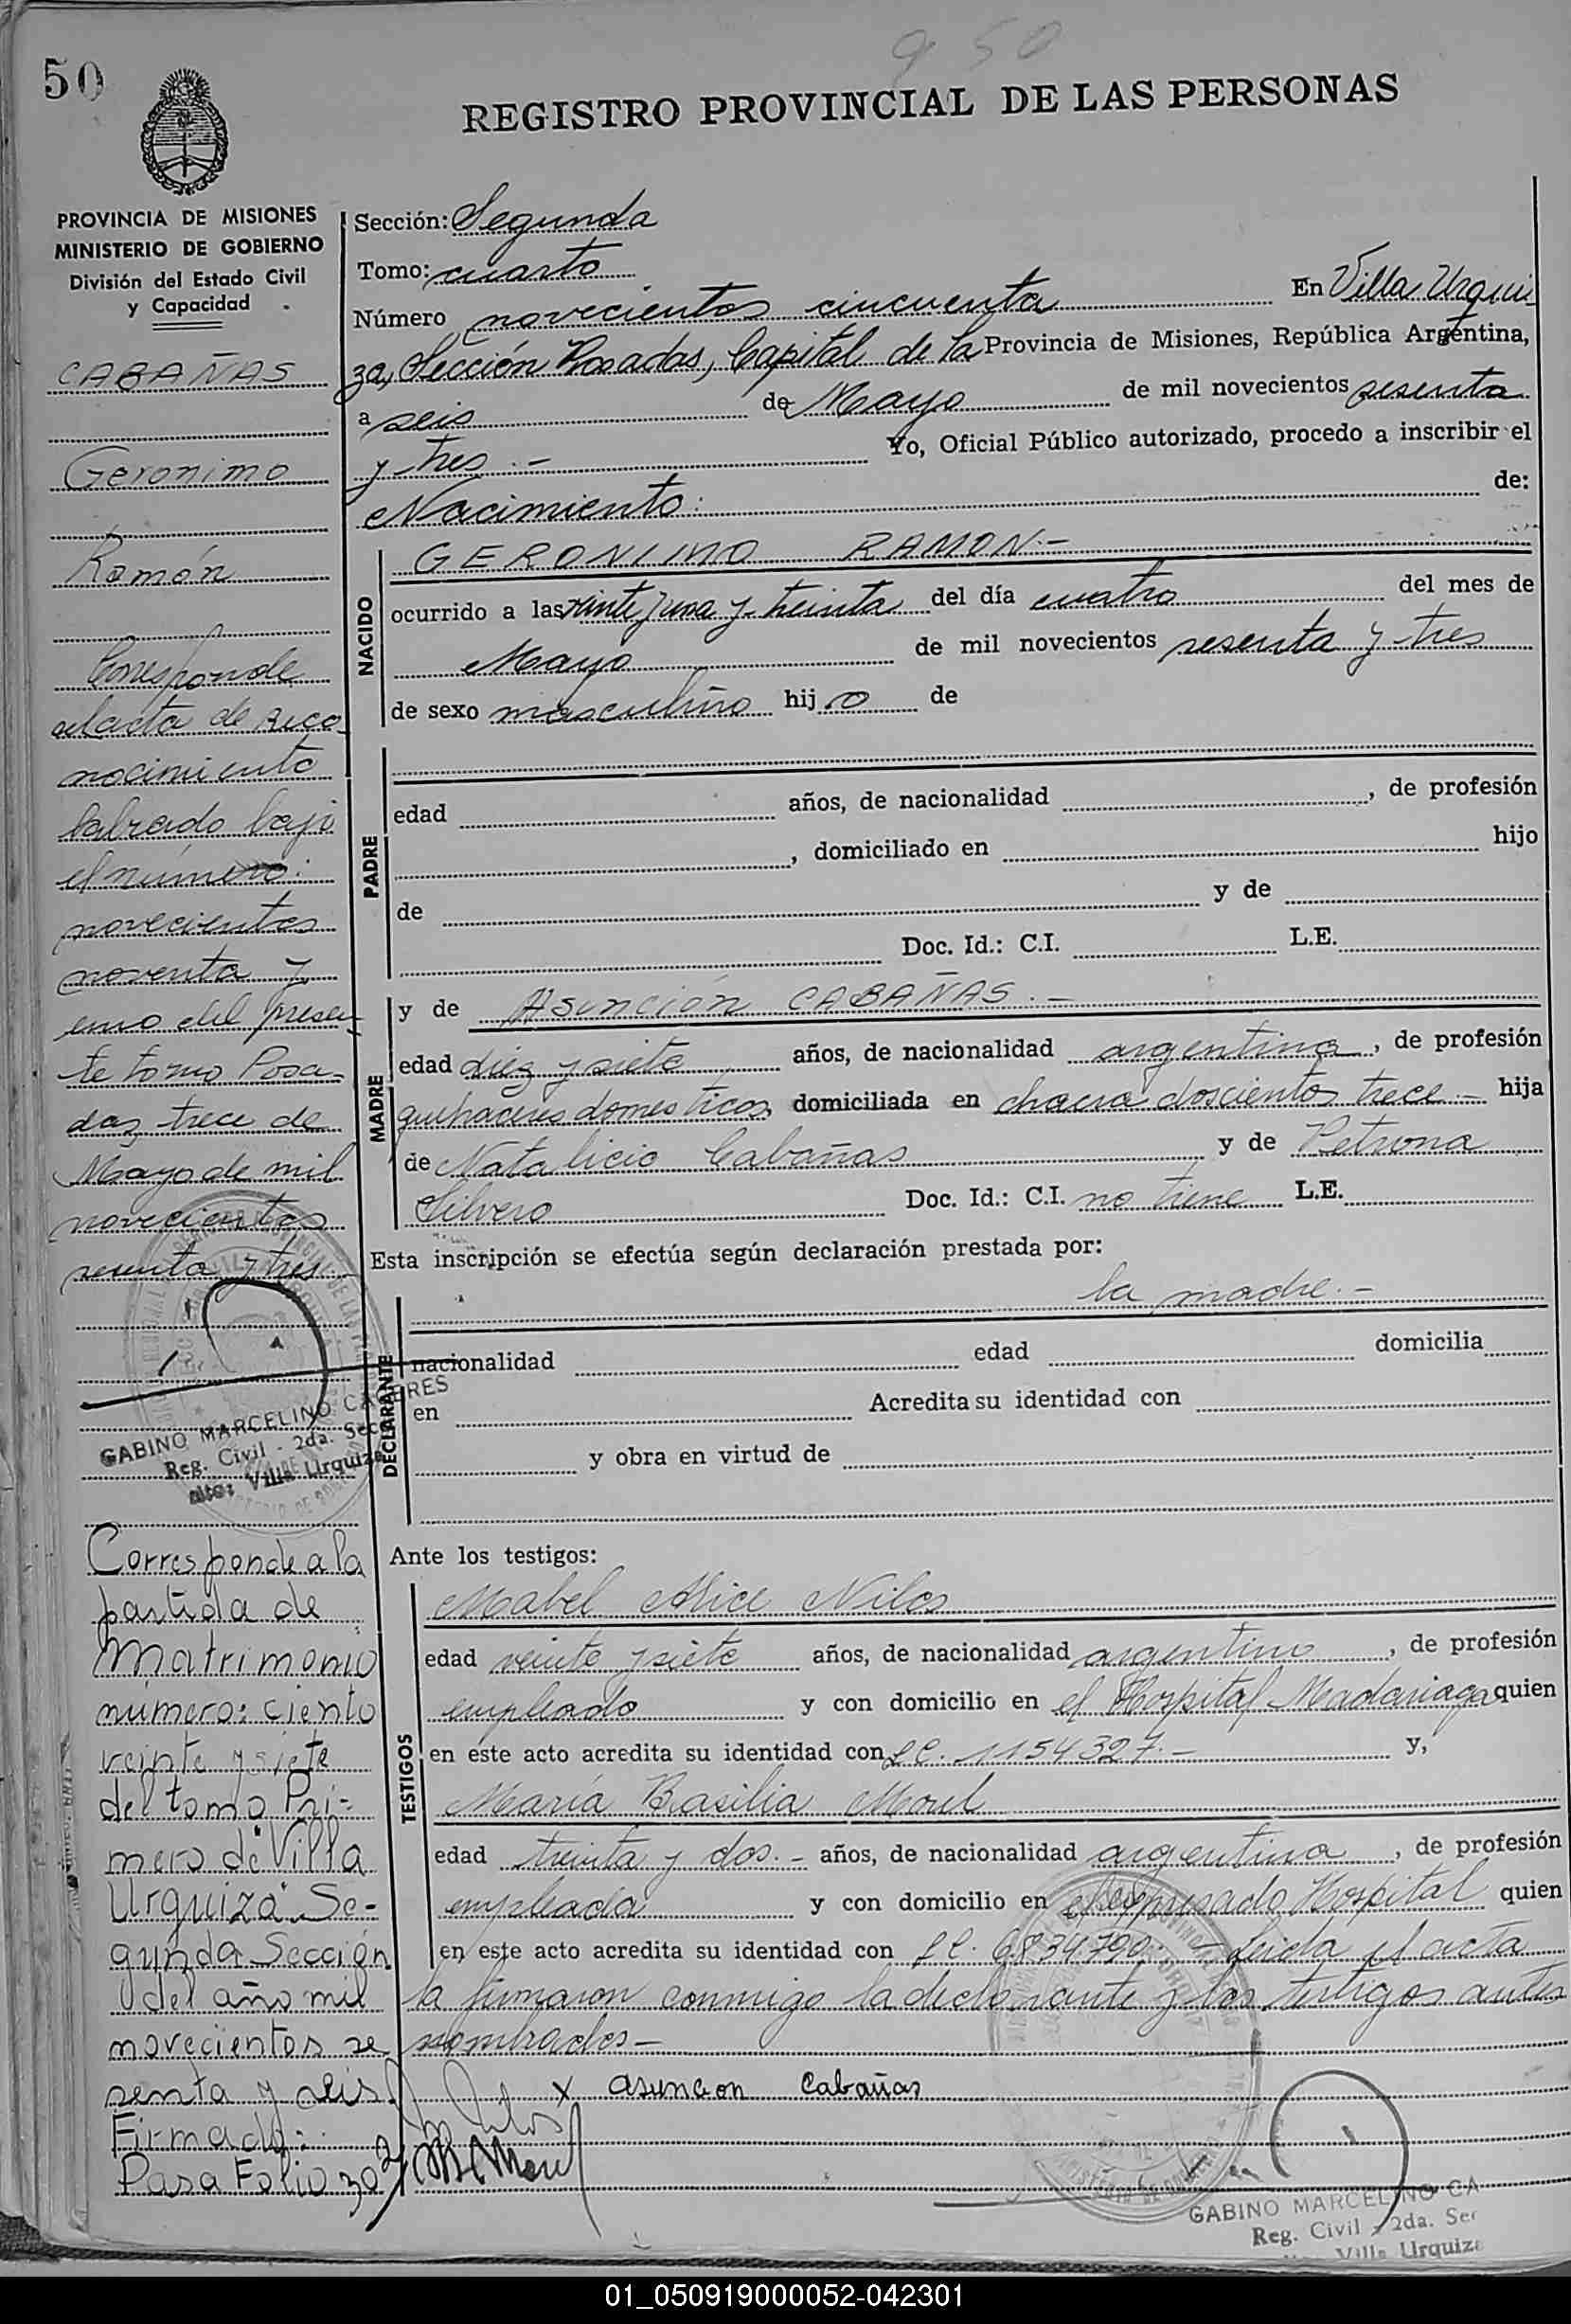 950
50
REGISTRO PROVINCIAL DE LAS PERSONAS
PROVINCIA DE MISIONES
MINISTERIO DE GOBIERNO
División del Estado Civil
y Capacidad
CABAÑAS
Geronimo
Ramón
Corresponde
al acta de reco
nocimiento
labrado bajo
el número:
novecientos
noventa y
uno del presen
te tomo Posa-
das, trece de
Mayo de mil
novecientos
sesenta y tres
GABINO MARCELINO CACERES
Reg. Civil - 2da. Secc
Villa Urquiza
Corresponde a la
partida de
Matrimonio
número: ciento
veinte y siete
del tomo Pri-
mero de "Villa
Urquiza" Se-
gunda Sección
del año mil
novecientos se
senta y seis.
Firmado:
Pasa Folio 30
Sección: Segunda
Tomo: cuarto
Número novecientos cincuenta En Villa Urqui
za, Sección Posadas, Capital de la Provincia de Misiones, República Argentina,
a seis de Mayo de mil novecientos sesenta
y tres.- Yo, Oficial Público autorizado, procedo a inscribir el
Nacimiento: de:
NACIDO
GERONIMO RAMON.-
ocurrido a las veinte y una y treinta del día cuatro del mes de
Mayo de mil novecientos sesenta y tres
de sexo masculino hijo de
PADRE
edad años, de nacionalidad , de profesión
, domiciliado en hijo
de y de
Doc. Id.: C.I. L.E.
MADRE
y de Asunción CABAÑAS.-
edad diez y siete años, de nacionalidad argentina, de profesión
quehaceres domesticos domiciliada en chacra doscientos trece.- hija
de Natalicio Cabañas y de Petrona
Silvero Doc. Id.: C.I. no tiene L.E.
Esta inscripción se efectúa según declaración prestada por:
la madre.-
DECLARANTE
nacionalidad edad domicilia
en Acredita su identidad con
y obra en virtud de
Ante los testigos:
TESTIGOS
Mabel Alice Nilos
edad veinte y siete años, de nacionalidad argentino, de profesión
empleado y con domicilio en el Hospital Madariaga quien
en este acto acredita su identidad con LC. 1154327.- y,
María Basilia Morel
edad treinta y dos.- años, de nacionalidad argentina, de profesión
empleada y con domicilio en el expresado Hospital quien
en este acto acredita su identidad con LC. 6834790.- Leida el acta
la firmaron conmigo la declarante y los testigos antes
nombrados-
x asuncion Cabañas
GABINO MARCELINO CA
Reg. Civil - 2da. Sec
Villa Urquiza
01_050919000052-042301